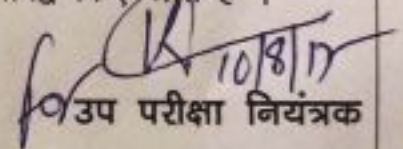 10/8/17
उप परीक्षा नियंत्रक